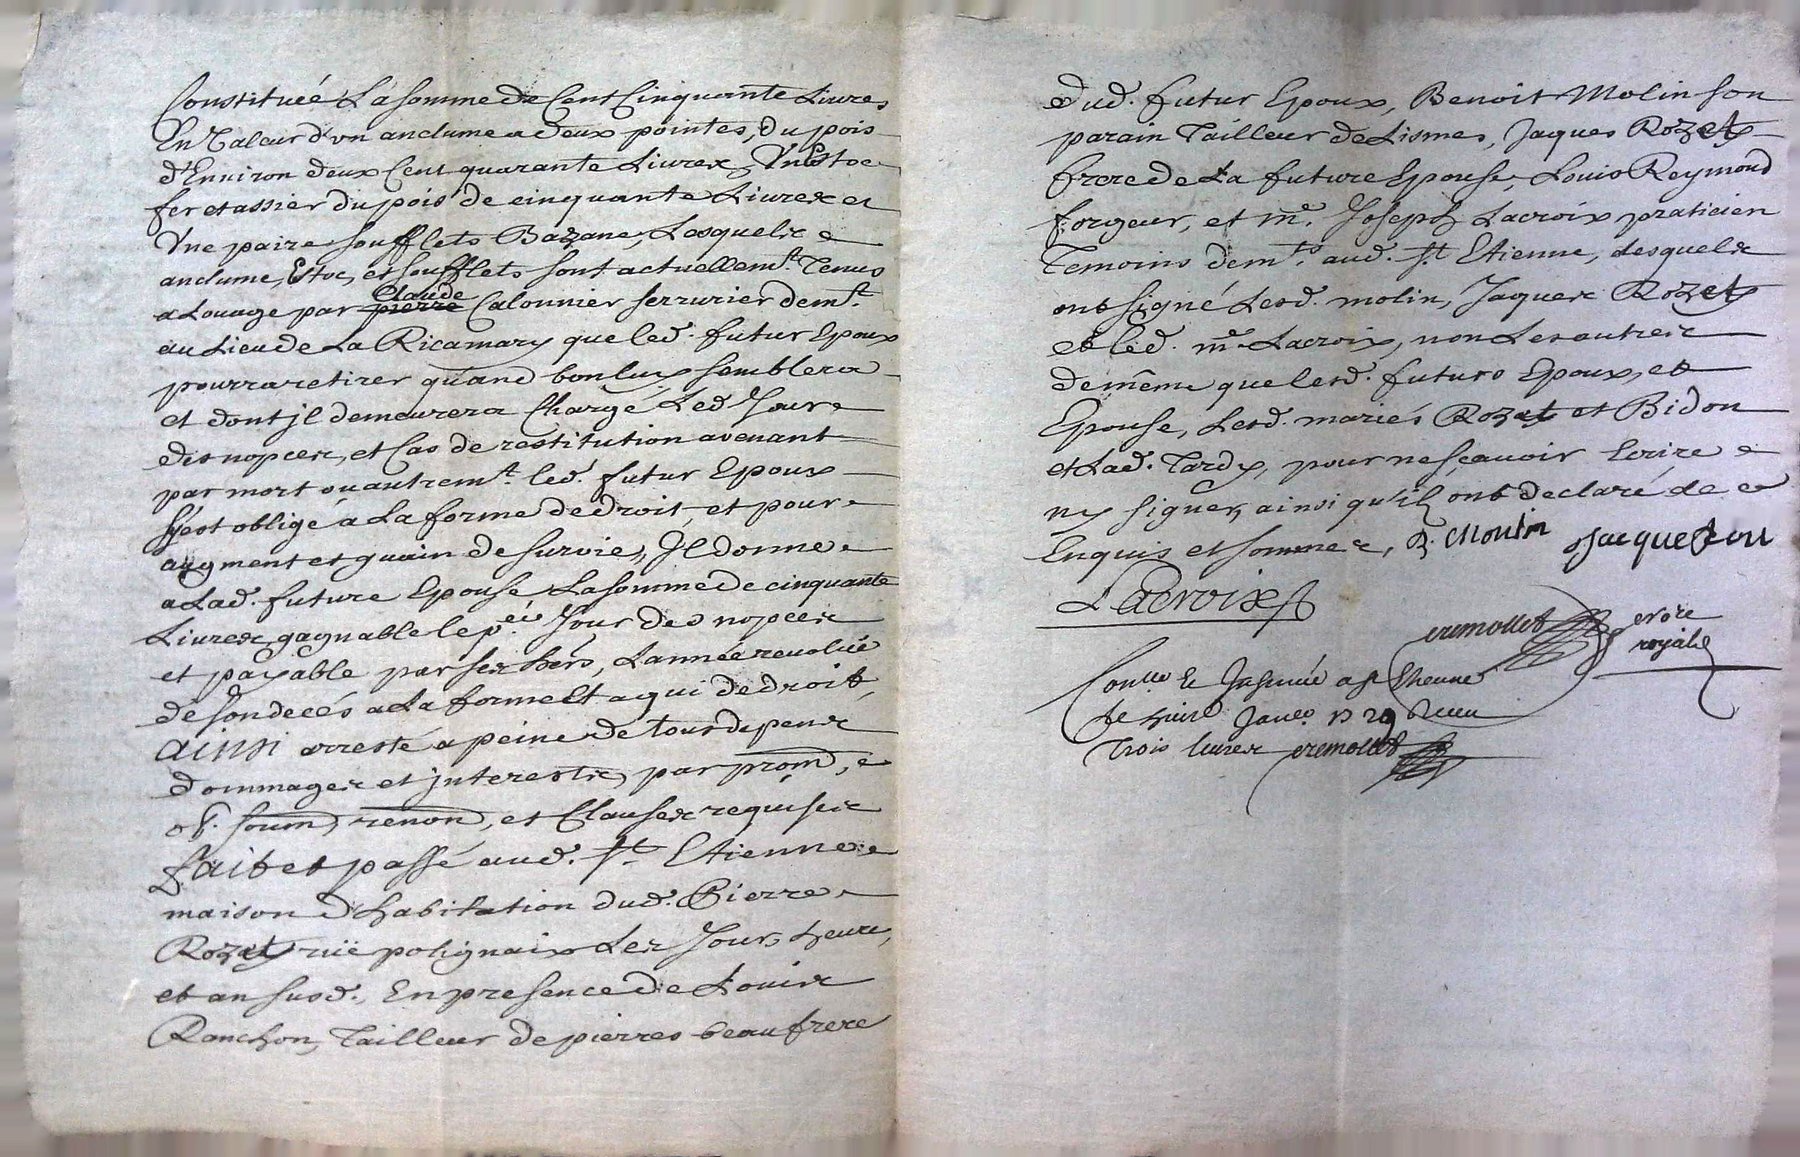 Constituée La somme de Cent Cinquante Livres
En Valeur d'un anclume a deux pointes, du pois
d'Environ deux Cent quarante Livres, Un Estoc
fer et assier du pois de cinquante Livres et
Une paire soufflets Bazane, Lesquels
anclume, Estoc, et soufflets sont actuellemt. Tenus
a Louage par pierre Claude Calonnier serrurier demt.
au Lieu de La Ricamary que led. futur Epoux
pourra retirer quand bon luy semblera
et dont jl demeurera Chargé Led Jour
des nopces, et Cas de restitution avenant
par mort ou autremt. led. futur Epoux
s'y est obligé a La forme de droit, et pour
augment et guain de survie, Jl donne
a Lad. future Epouse La somme de cinquante
Livres gagnable le pr. Jour des nopces
et payable par ses hers, L'année revolüe
de son decés a La forme Et a qui de droit,
ainsi arresté a peine de tous depens
dommages et jnterests, par prom,
ob. soum, renon, et Clauses requises
Fait et passé aud. St Etienne
maison d'habitation dud. Pierre
Rozet rüe polignaix Les Jour, heure,
et an susd., En presence de Louis
Ranchon, Tailleur de pierres beaufrere
dud. futur Epoux, Benoit Molin son
parain Tailleur de Limes, Jaques Rozet
frere de La future Epouse, Louis Reymond
forgeur, et me. Joseph Lacroix praticien
Temoins demts. aud. St Etienne, desquels
ont signé Lesd. molin, Jaques Rozet
et led. me Lacroix, non Les autres
de même que lesd. futurs Epoux, et
Epouse, Lesd. mariés Rozet et Bidon
et Lad. Tardy, pour ne sçavoir Ecrire
ny signer, ainsi qu'ils ont declaré de ce
Enquis et sommes, B. Moulin Jacque
Lacroix
cremollet
royale
Con.lle & Insinué a St Etienne
le huit Janer. 1729 Receu
Trois livres cremollet